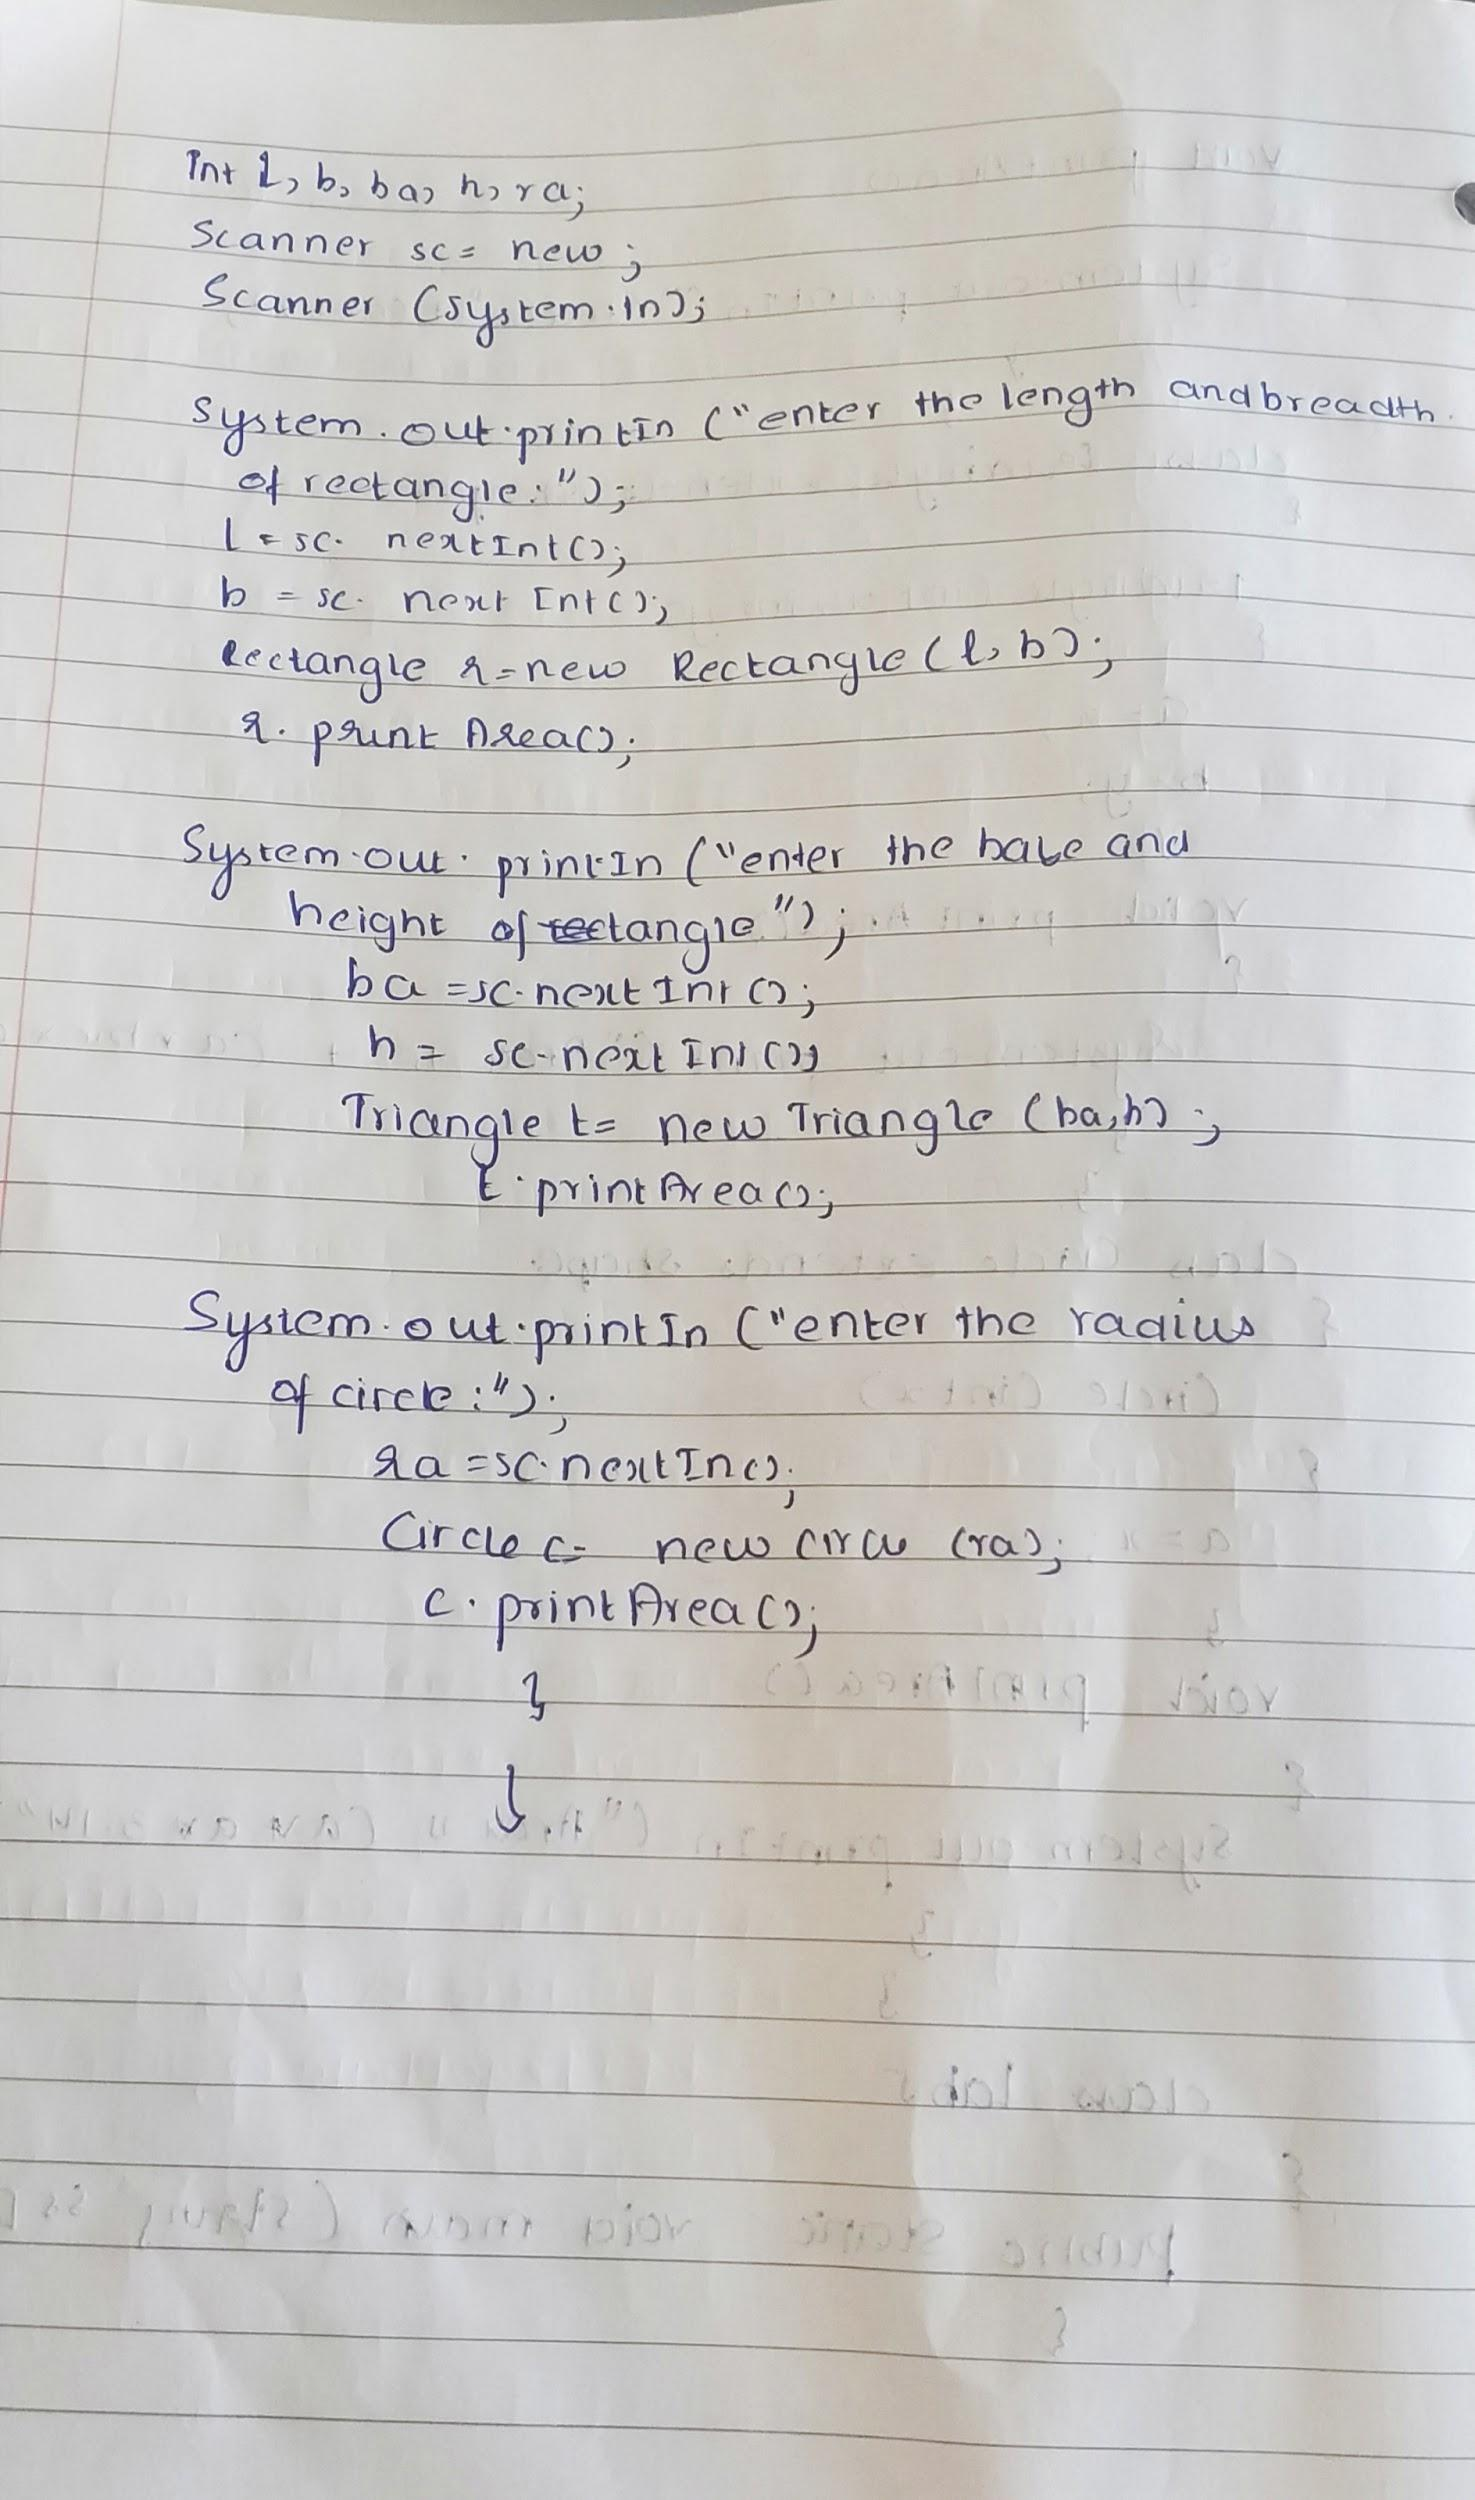 Int l, b, ba, h, ra;
Scanner sc = new ;
Scanner (System.in);
System.out.printIn ("enter the length and breadth
of rectangle:");
l = sc. nextInt();
b = sc. next Int();
Rectangle r = new Rectangle (l, b);
r. print Area();
System.out. printIn ("enter the base and
height of rectangle");
ba = sc.next Int ();
h = sc.next Int ();
Triangle t = new Triangle (ba, h) ;
t.print Area();
System.out.printIn ("enter the radius
of circle :");
ra = sc.nextIn();
Circle c = new circle (ra);
c. print Area();
}